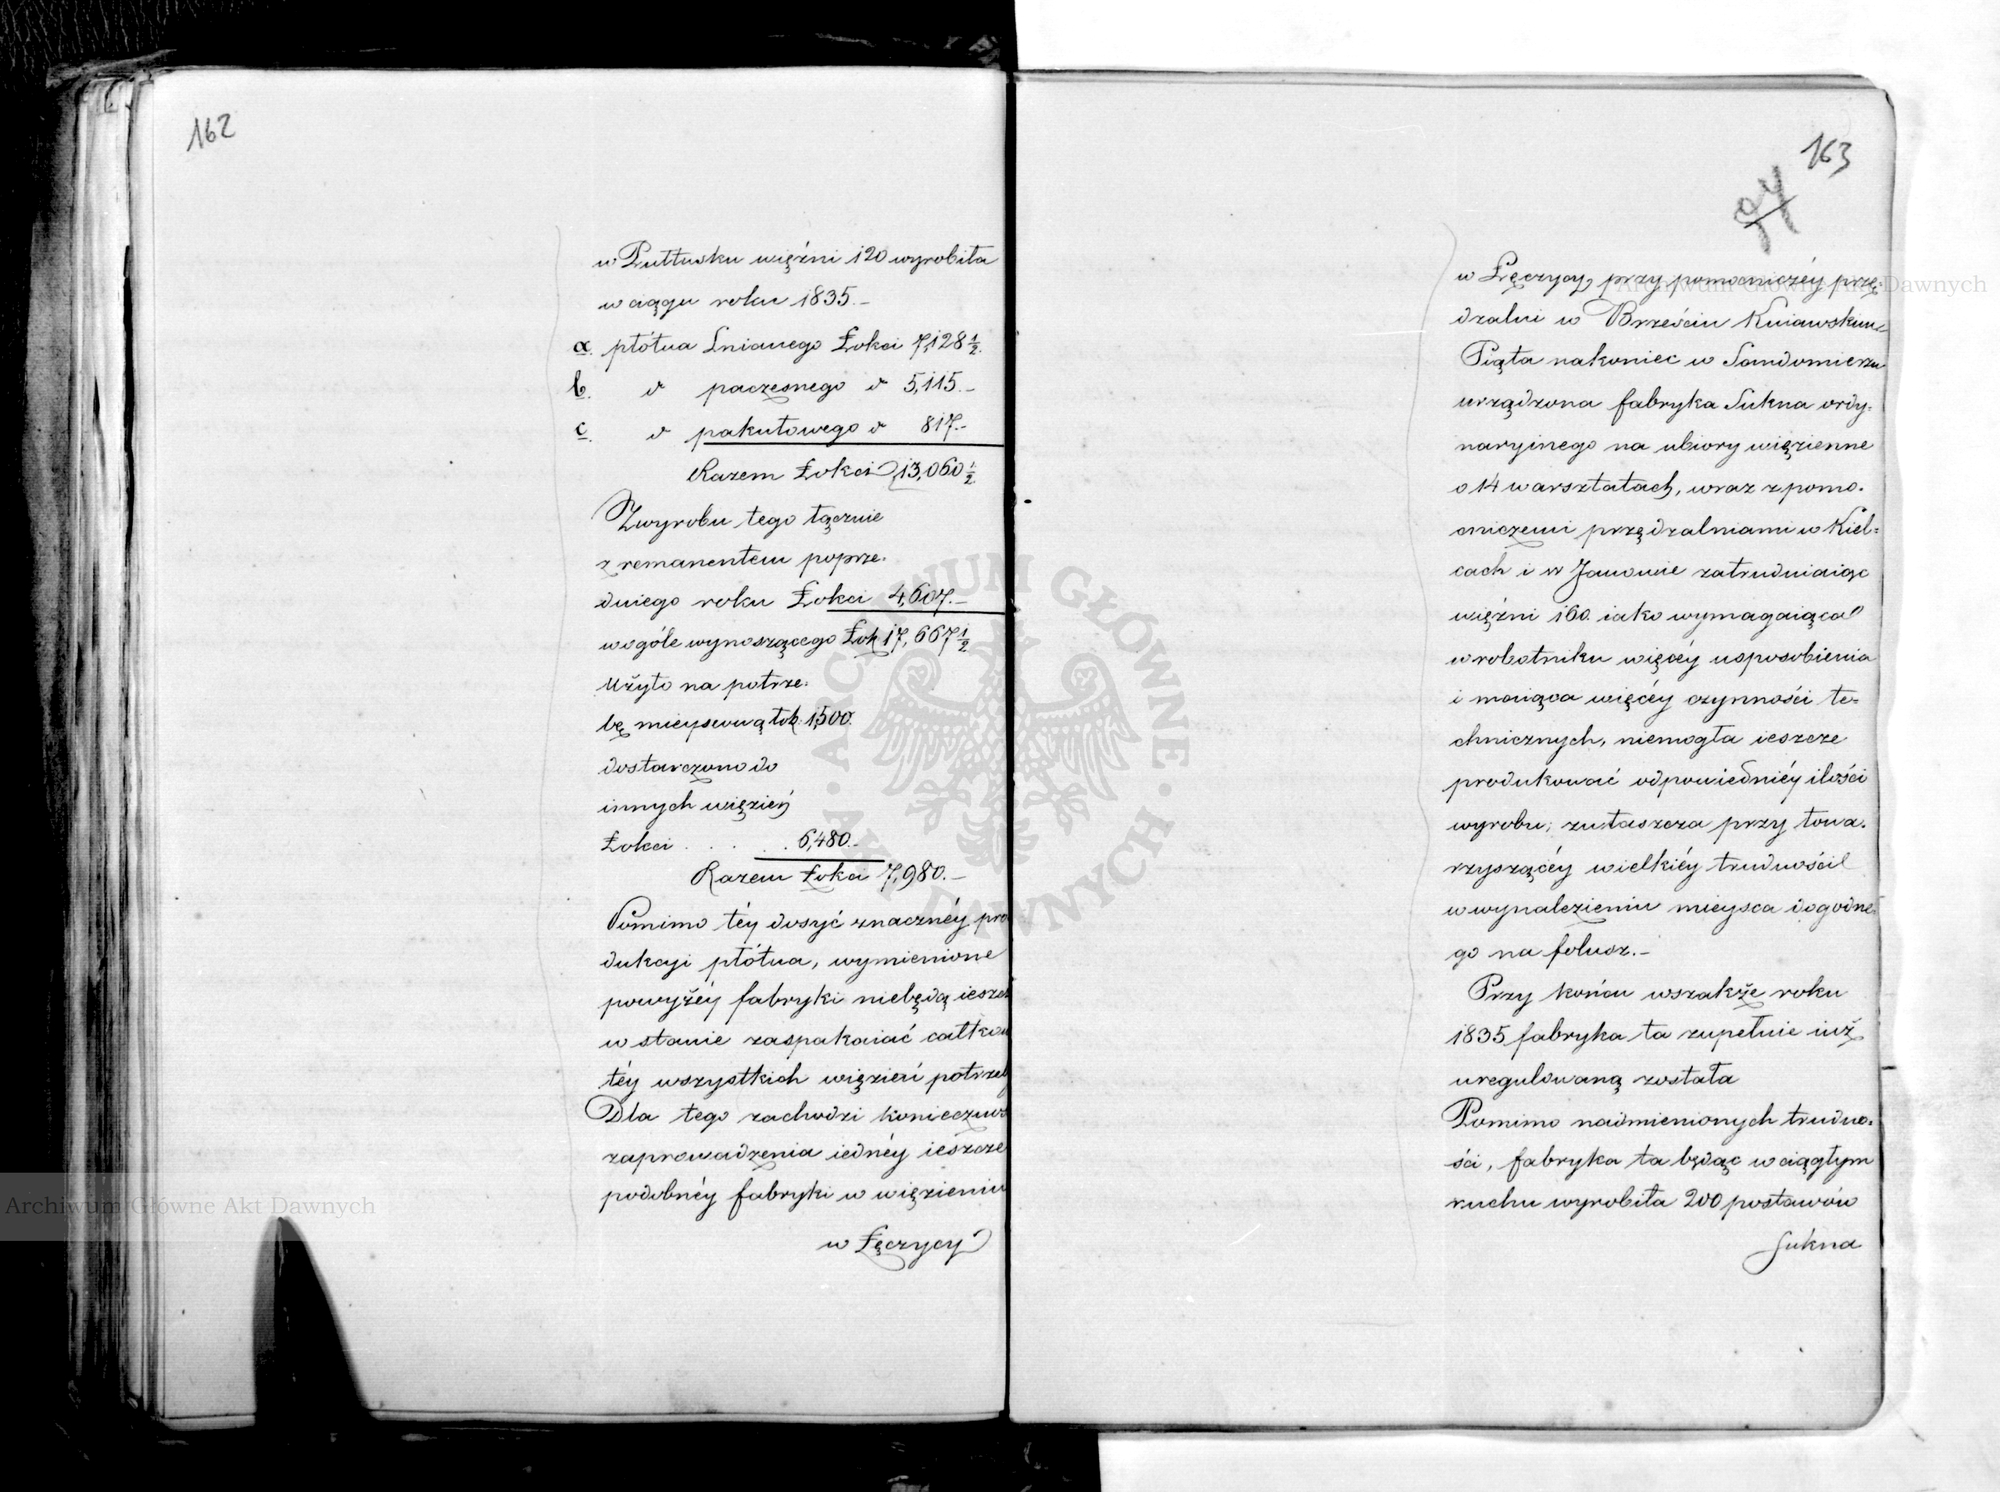 162
w Pułtusku więźni 120 wyrobiła
w ciągu roku 1835.–
a. płótna Lnianego Łokci 7,128 1/2.
b. d paczesnego d 5,115.–
c. d pakułowego d 817.–
Razem Łokci 13,060 1/2.
Z wyrobu tego łącznie
z remanentem poprze-
dniego roku Łokci 4,607.–
w ogóle wynoszącego Łok 17,667 1/2
Użyto na potrze-
bę mieyscową łok. 1,500.
dostarczono do
innych więzień
Łokci . . . . 6,480.–
Razem Łokci 7,980.–
Pomimo téy dosyć znacznéy pro
dukcyi płótna, wymienione
powyżéy fabryki niebędą ieszcz
w stanie zaspakaiać całkow
téy wszystkich więzień potrzeb
Dla tego zachodzi konieczno
zaprowadzenia iednéy ieszcze
podobnéy fabryki w więzieniu
w Łęczycy
163
94
w Łęczycy, przy pomocniczéy przę-
dzalni w Brześciu Kuiawskim
Piąta nakoniec w Sandomierzu
urządzona fabryka Sukna ordy-
naryinego na ubiory więzienne
o 14 warsztatach, wraz z pomo-
cniczemi przędzalniami w Kiel-
cach i w Janowie zatrudniaiąc
więźni 160. iako wymagaiąca
w robotniku więcéy usposobienia
i maiąca więcéy czynności te-
chnicznych, niemogła ieszcze
produkować odpowiedniéy ilości
wyrobu; zwłaszcza przy towa-
rzyszącéy wielkiéy trudności
w wynalezieniu mieysca dogodne-
go na folusz.–
Przy końcu wszakże roku
1835 fabryka ta zupełnie iuż
uregulowaną została
Pomimo nadmienionych trudno-
ści, fabryka ta będąc w ciągłym
ruchu wyrobiła 200 postawów
Sukna
ARCHIWUM GŁÓWNE AKT DAWNYCH
Archiwum Główne Akt Dawnych
Archiwum Główne Akt Dawnych